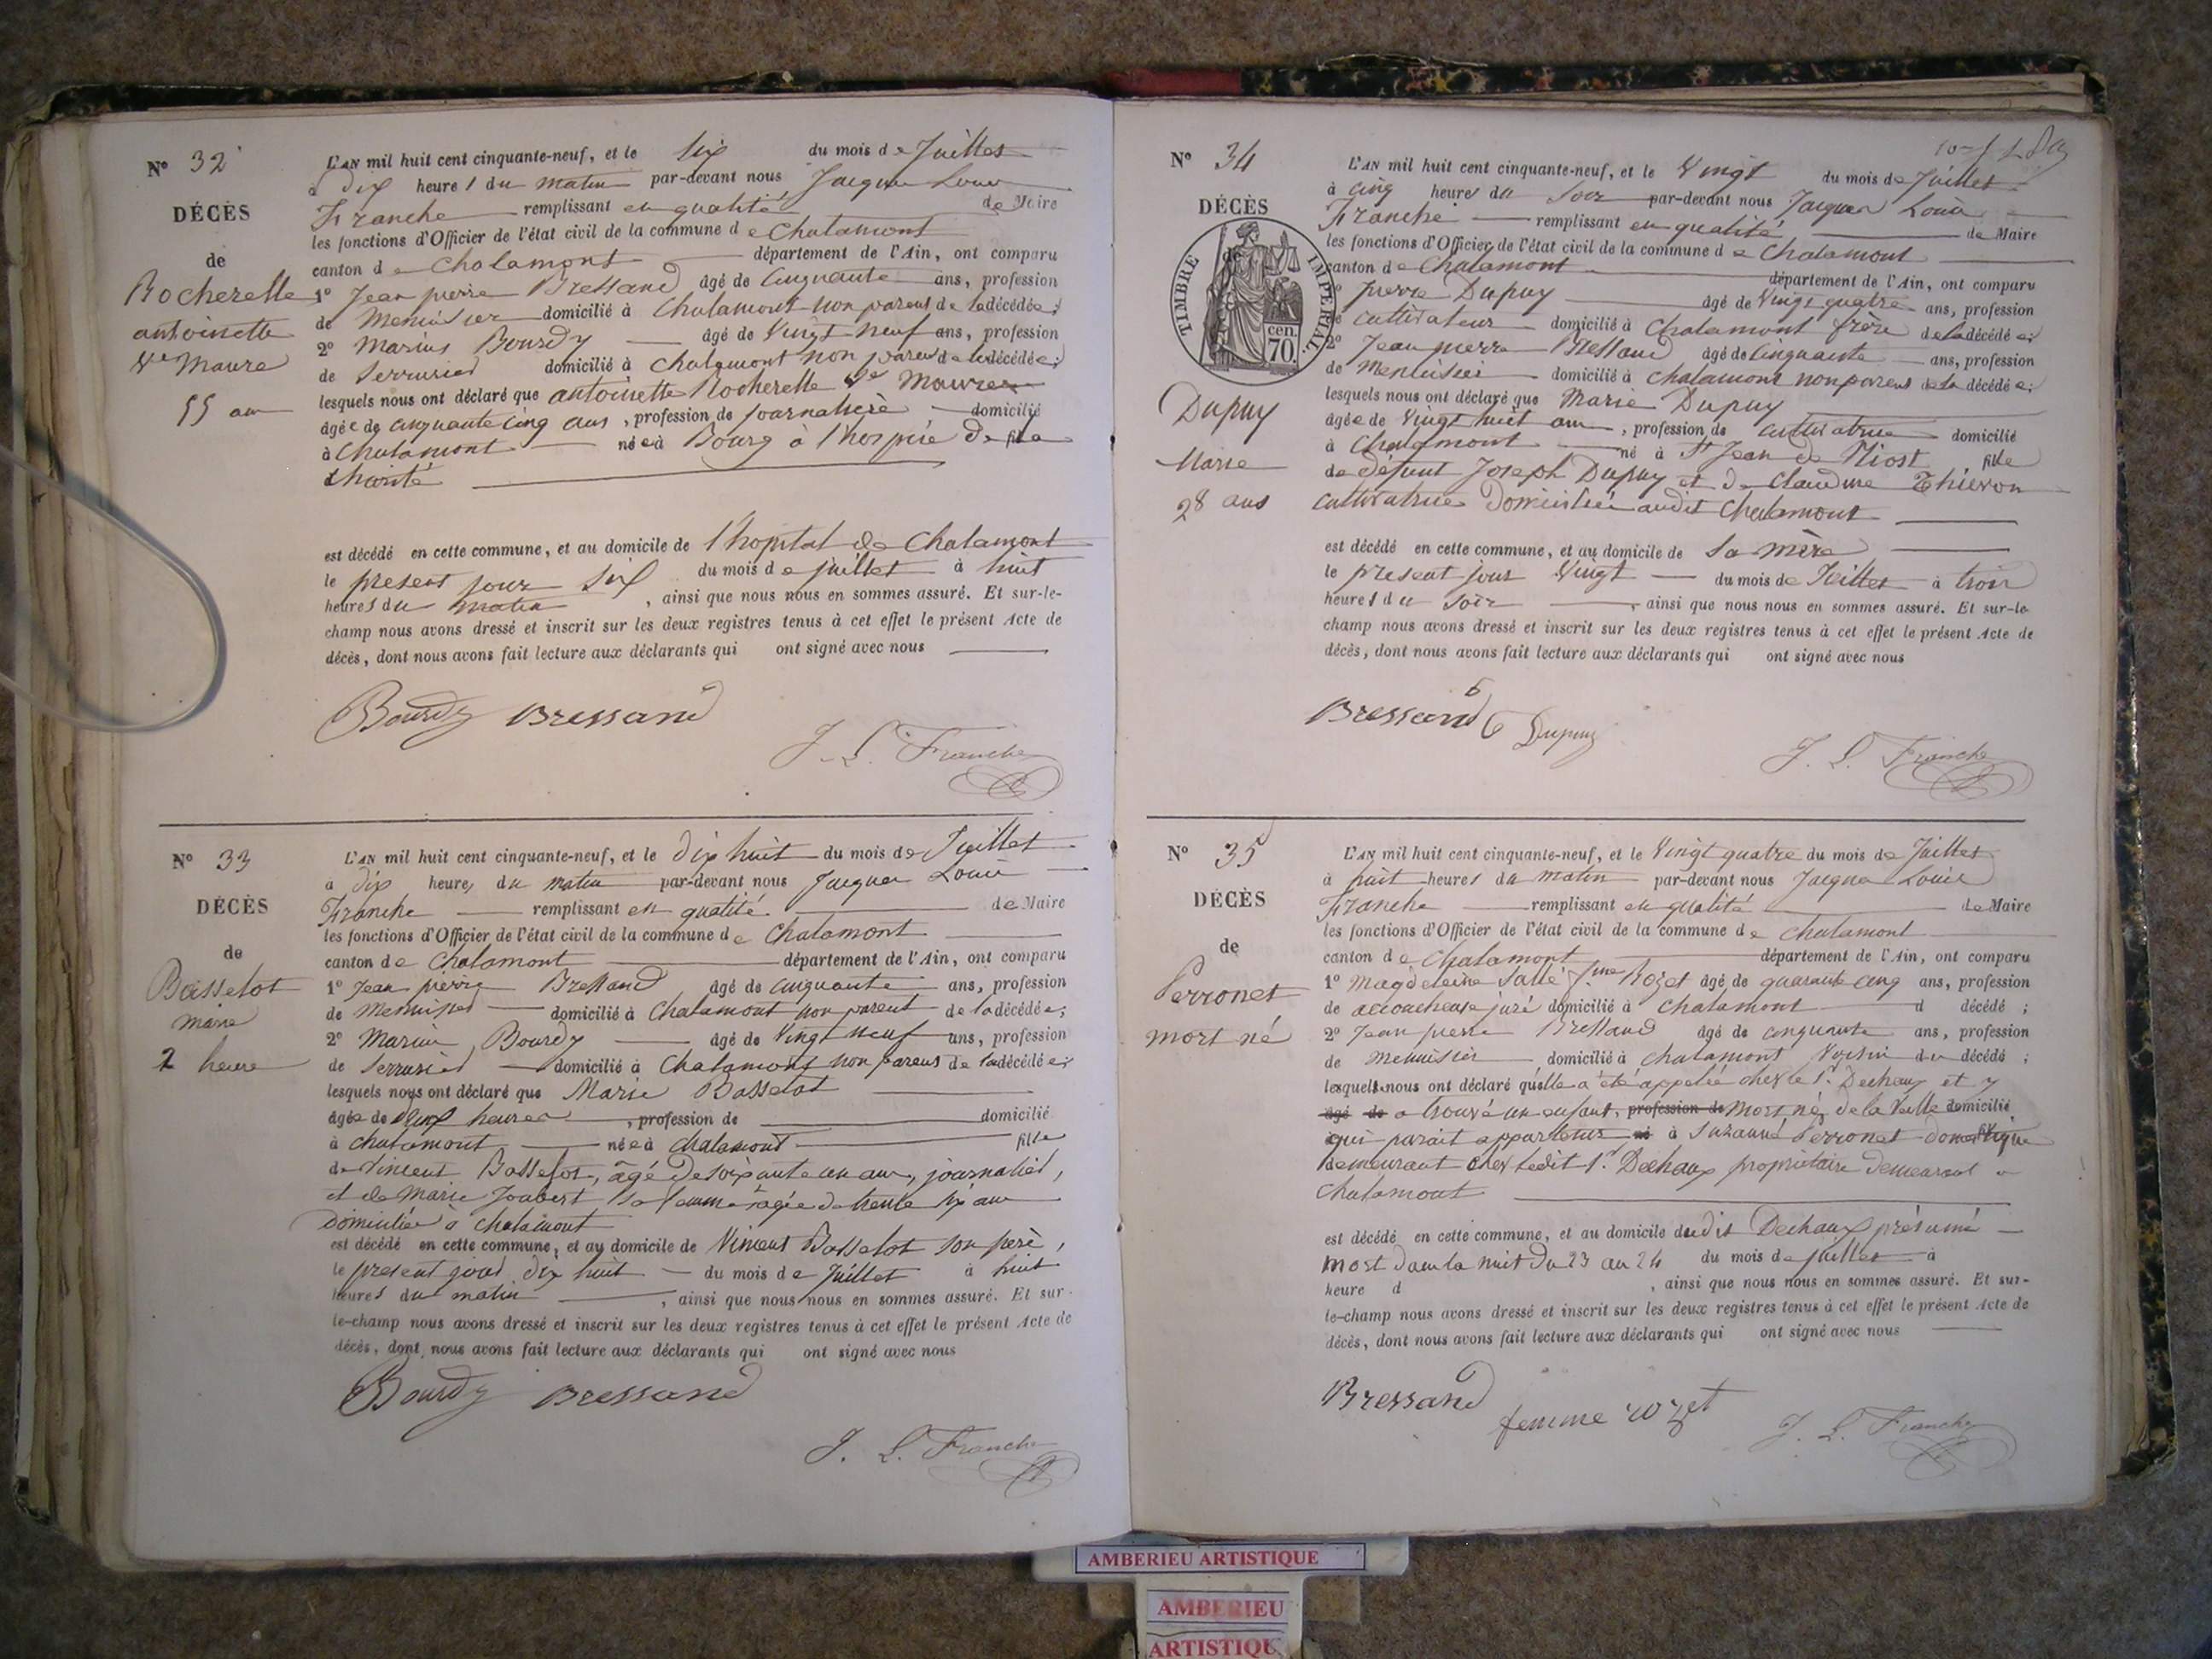 N° 32
DÉCÈS
de
Rocherelle
antoinette
Ve Maure
55 ans
L'AN mil huit cent cinquante-neuf, et le six du mois de Juillet
à dix heures du matin par-devant nous Jacques Louis
Franche remplissant en qualité de Maire
les fonctions d'Officier de l'état civil de la commune de Chalamont
canton de Chalamont département de l'Ain, ont comparu
1° Jean pierre Bressand âgé de cinquante ans, profession
de Menuisier domicilié à Chalamont non parent de la décédée;
2° Marius Bourdy âgé de Vingt neuf ans, profession
de Serrurier domicilié à Chalamont non parent de la décédée;
lesquels nous ont déclaré que antoinette Rocherelle Ve Maure
âgée de cinquante cinq ans, profession de journalière domicilié
à Chalamont née à Bourg à l'hospice de la
charité
est décédé en cette commune, et au domicile de l'hopital de Chalamont
le present jour six du mois de juillet à huit
heures du matin, ainsi que nous nous en sommes assuré. Et sur-le-
champ nous avons dressé et inscrit sur les deux registres tenus à cet effet le présent Acte de
décès, dont nous avons fait lecture aux déclarants qui ont signé avec nous
Bourdy Bressand
J. L. Franche
N° 33
DÉCÈS
de
Basselot
marie
2 heure
L'AN mil huit cent cinquante-neuf, et le dix huit du mois de Juillet
à dix heures du matin par-devant nous Jacques Louis
Franche remplissant en qualité de Maire
les fonctions d'Officier de l'état civil de la commune de Chalamont
canton de Chalamont département de l'Ain, ont comparu
1° Jean pierre Bressand âgé de cinquante ans, profession
de Menuisier domicilié à Chalamont non parent de la décédée;
2° Marius Bourdy âgé de Vingt neuf ans, profession
de Serrurier domicilié à Chalamont non parent de la décédée;
lesquels nous ont déclaré que Marie Basselot
âgée de deux heures, profession de domicilié
à chalamont née à chalamont fille
de Vincent Basselot, âgé de soixante un ans, journalier,
et de Marie Joubert sa femme âgée de trente six ans
Domiciliée à chalamont
est décédé en cette commune, et au domicile de Vincent Basselot son père,
le present jour dix huit du mois de Juillet à huit
heures du matin, ainsi que nous nous en sommes assuré. Et sur-
le-champ nous avons dressé et inscrit sur les deux registres tenus à cet effet le présent Acte de
décès, dont nous avons fait lecture aux déclarants qui ont signé avec nous
Bourdy Bressand
J. L. Franche
N° 34
DÉCÈS
de
TIMBRE IMPERIAL
70 cen.
Dupuy
Marie
28 ans
L'AN mil huit cent cinquante-neuf, et le Vingt du mois de Juillet
à cinq heures du Soir par-devant nous Jacques Louis
Franche remplissant en qualité de Maire
les fonctions d'Officier de l'état civil de la commune de Chalamont
canton de Chalamont département de l'Ain, ont comparu
1° pierre Dupuy âgé de Vingt quatre ans, profession
de cultivateur domicilié à Chalamont frère de la décédée;
2° Jean pierre Bressand âgé de Cinquante ans, profession
de Menuisier domicilié à chalamont non parent de la décédée;
lesquels nous ont déclaré que Marie Dupuy
âgée de Vingt huit ans, profession de cultivatrice domicilié
à Chalamont né à St Jean de Niost fille
de défunt Joseph Dupuy et de Claudine Thiévon
cultivatrice Domiciliée audit Chalamont
est décédé en cette commune, et au domicile de Sa mère
le present jour Vingt du mois de Juillet à trois
heures du Soir, ainsi que nous nous en sommes assuré. Et sur-le-
champ nous avons dressé et inscrit sur les deux registres tenus à cet effet le présent Acte de
décès, dont nous avons fait lecture aux déclarants qui ont signé avec nous
Bressand Dupuy
J. L. Franche
N° 35
DÉCÈS
de
Perronet
mort né
L'AN mil huit cent cinquante-neuf, et le Vingt quatre du mois de Juillet
à huit heures du matin par-devant nous Jacques Louis
Franche remplissant en qualité de Maire
les fonctions d'Officier de l'état civil de la commune de chalamont
canton de Chalamont département de l'Ain, ont comparu
1° Magdeleine Sallé fme Rozet âgé de quarante cinq ans, profession
de accoucheuse juré domicilié à Chalamont d décédé;
2° Jean pierre Bressand âgé de cinquante ans, profession
de menuisier domicilié à chalamont Voisin du décédé;
lesquels nous ont déclaré qu'elle a été appelée chez le Sr Dechaux et y
âgé de a trouvé un enfant, profession de mort né, de la Veille domicilié
qui parait appartenir à Suzanne Perronet domestique
demeurant chez ledit Sr Dechaux propriétaire demeurant a
Chalamont
est décédé en cette commune, et au domicile dudit Dechaux présumé
mort dans la nuit du 23 au 24 du mois de juillet à
heure d, ainsi que nous nous en sommes assuré. Et sur-
le-champ nous avons dressé et inscrit sur les deux registres tenus à cet effet le présent Acte de
décès, dont nous avons fait lecture aux déclarants qui ont signé avec nous
Bressand
femme rozet
J. L. Franche
AMBERIEU ARTISTIQUE
AMBERIEU
ARTISTIQUE